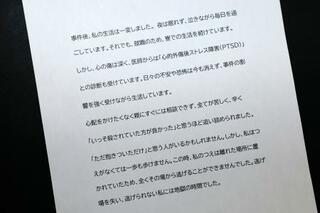 事件後、私の生活は一変しました。夜は眠れず、泣きながら毎日を過
ごしています。それでも、就職のため、寮での生活を続けています。
しかし、心の傷は深く、医師からは「心的外傷後ストレス障害(PTSD)」
との診断も受けています。日々の不安や恐怖は今も消えず、事件の影
響を強く受けながら生活しています。
心配をかけたくなく親にすぐには相談できず、全てが苦しく、辛く
「いっそ殺されていた方が良かった」と思うほど追い詰められました。
「ただ抱きついただけ」と思う人がいるかもしれません。しかし、私はつ
えがなくては一歩も歩けません。この時、私のつえは離れた場所に置
かれていたため、全くその場から逃げることができませんでした。逃げ
場を失い、逃げられない私には地獄の時間でした。